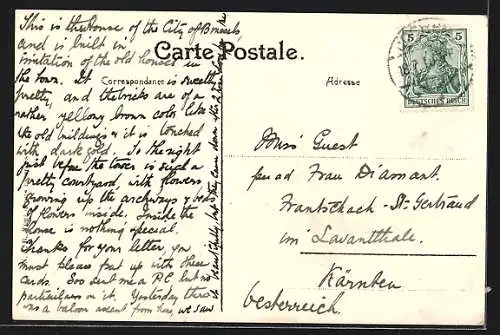 This is the House of the City of Brussels,
and is built in
imitation of the old houses in
the town. It is
pretty, and the bricks are of a
rather yellowy brown color like
the old buildings & it is touched
with dark gold. To the right
just before the tower is such a
pretty courtyard, with flowers
growing up the archways & beds
of flowers inside. Inside the
House is nothing special.
Thanks for your letter, you
must please put up with these
cards. Soso sent me a P.C. but no
particulars on it. Yesterday there
was a baloon ascent from here, we saw
it beautifully, but the came down
Carte Postale.
Correspondance
Adresse
5 5
DEUTSCHES REICH
Miss Guest
per ad Frau Diamant.
Frantschach - St. Gertraud
im Lavantthale.
Kärnten
Oesterreich.